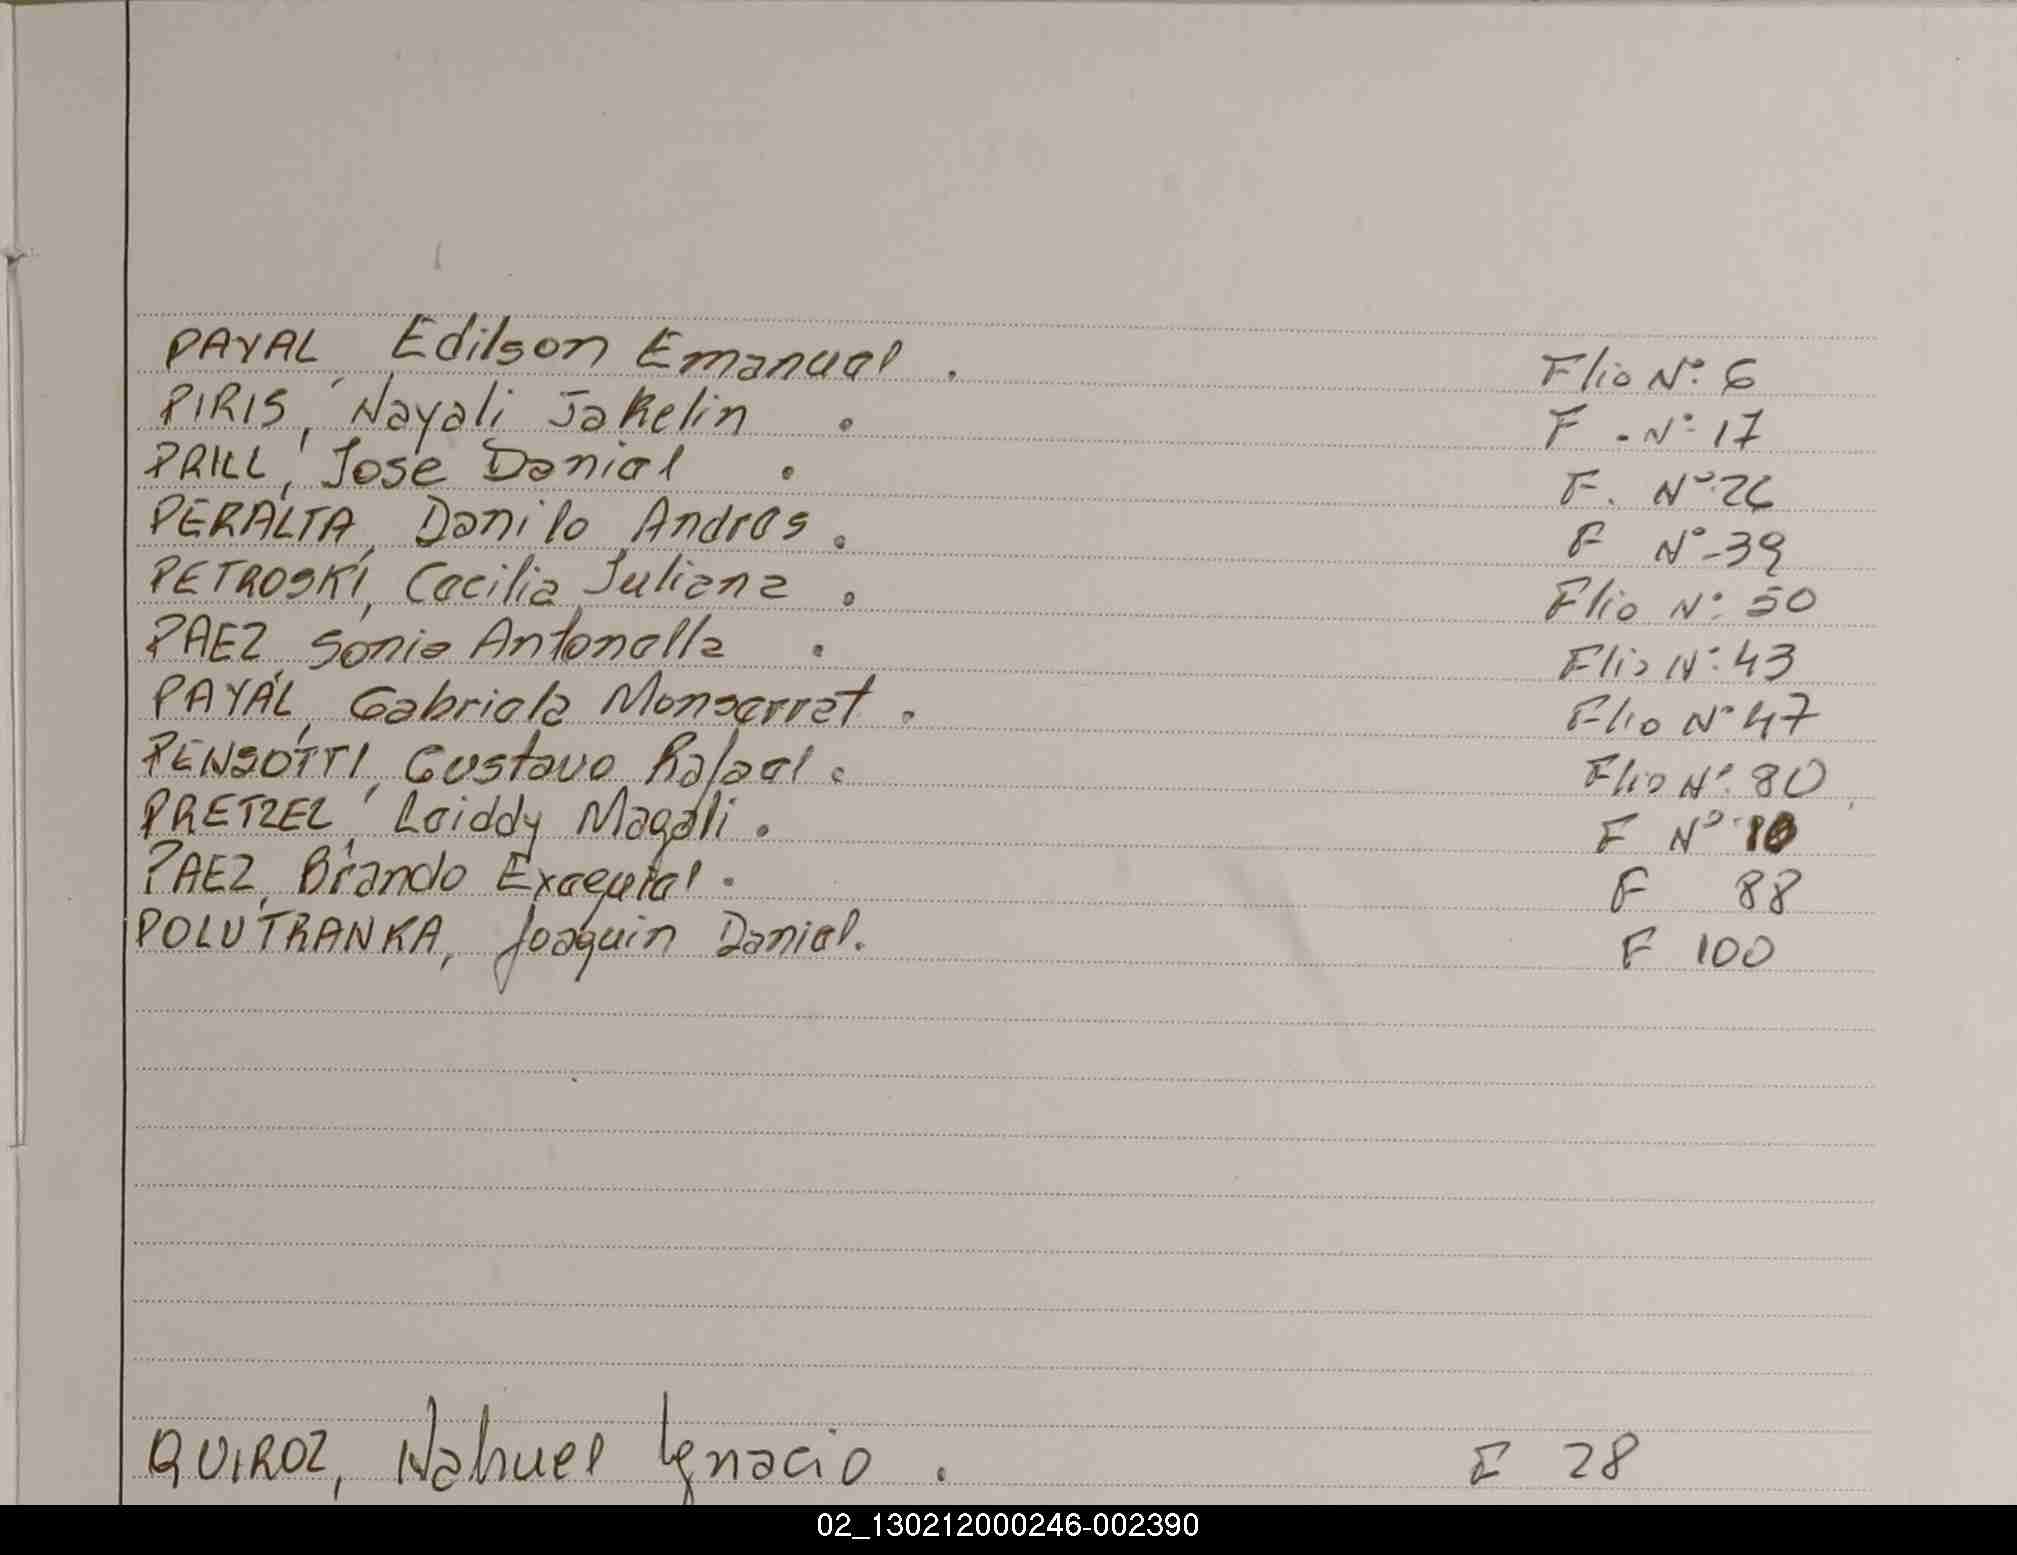 PAYAL, Edilson Emanuel. Flio Nº: 6
PIRIS, Nayeli Jakelin. F. Nº: 17
PRILL, Jose Daniel. F. Nº: 26
PERALTA, Danilo Andres. F Nº-39
PETROSKI, Cecilia Juliana. Flio Nº: 50
PAEZ, Sonia Antonella. Flio Nº: 43
PAYAL, Gabriela Monserrat. Flio Nº 47
PENSOTTI, Gustavo Rafael. Flio Nº: 80
PRETZEL, Leiddy Magali. F Nº 10
PAEZ, Brando Exequiel. F 88
POLUTRANKA, Joaquin Daniel. F 100
QUIROZ, Nahuel Ignacio. F 28
02_130212000246-002390